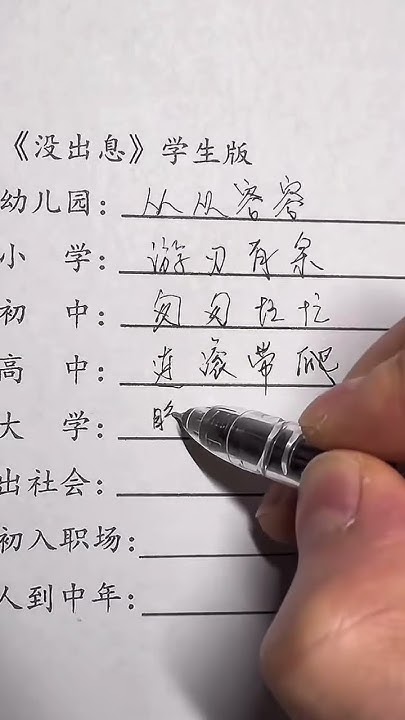 《没出息》学生版
幼儿园：从从容容
小学：游刃有余
初中：匆匆忙忙
高中：连滚带爬
大学：
出社会：
初入职场：
人到中年：